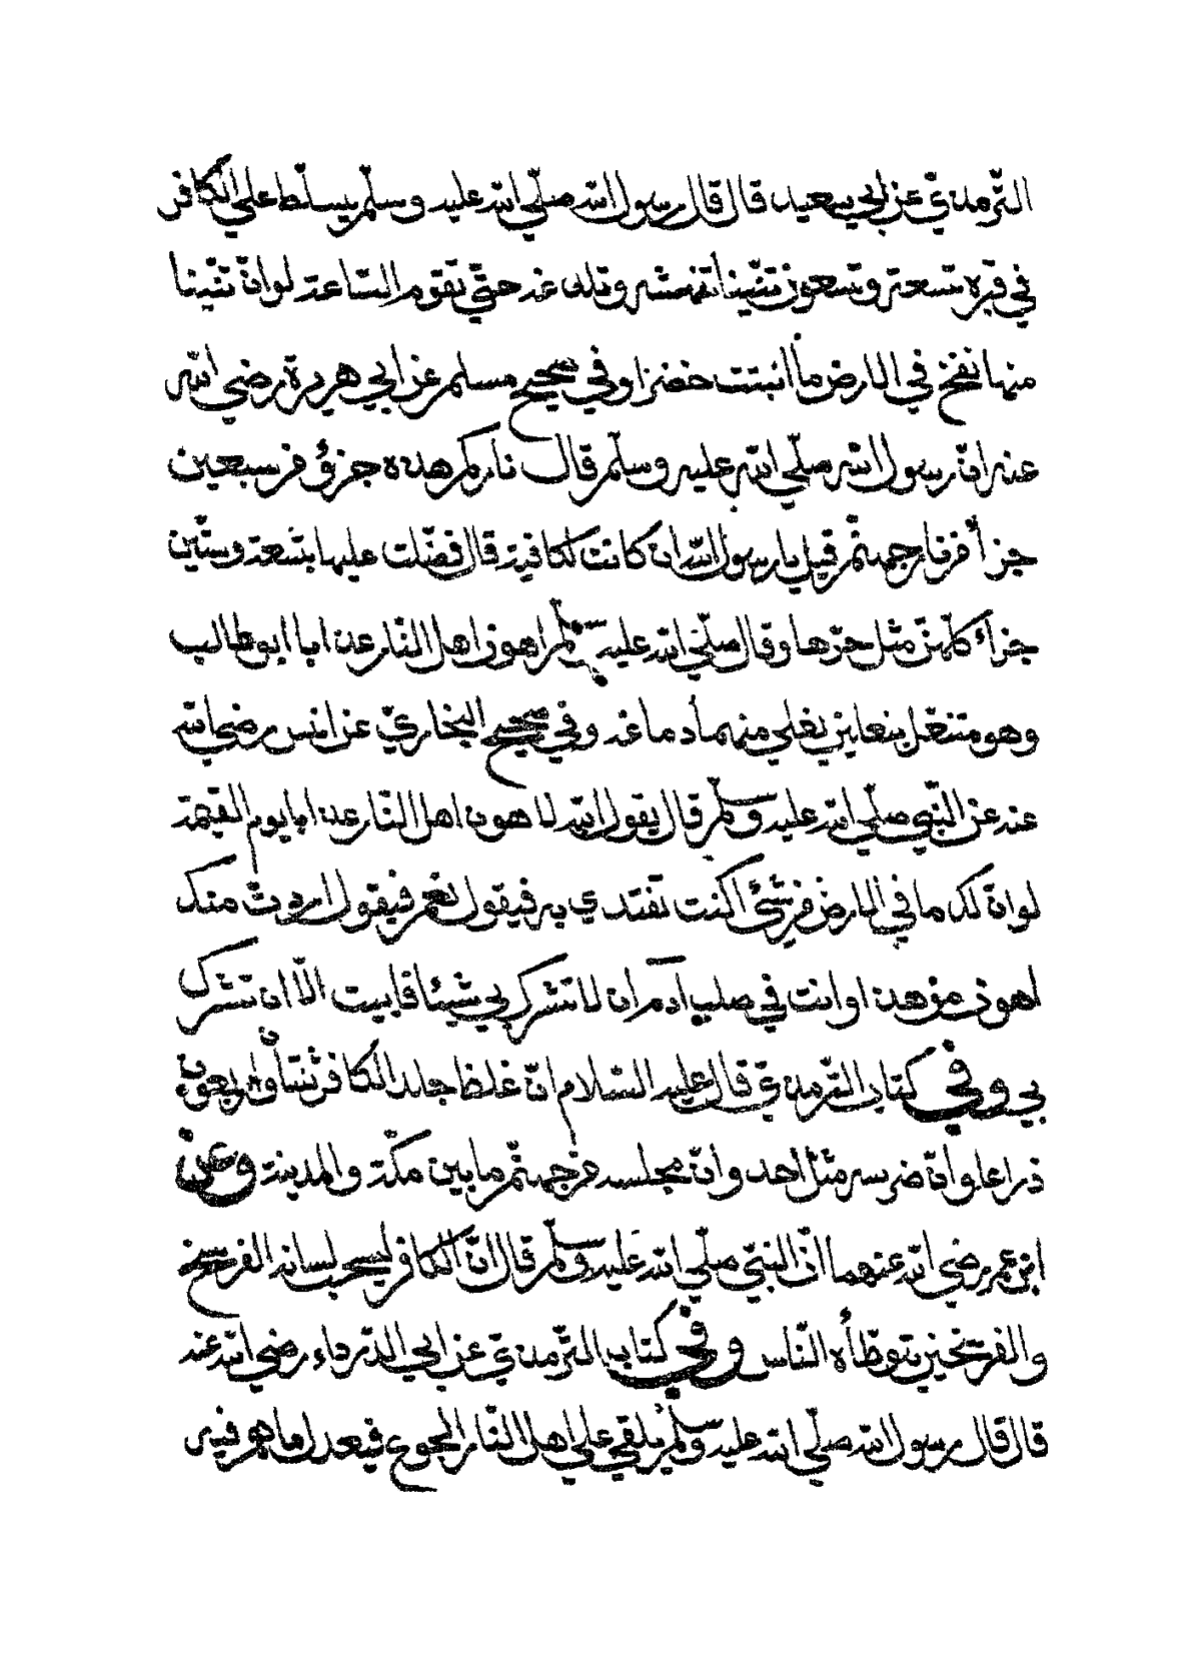 الترمذيّ عن ابي سعيد قال قال رسول الله صلّي الله عليه وسلّم يسلّط علي الكافر
في قبره تسعة وتسعون تنّينا تنهشه وتلدغه حتّي تقوم السّاعة لو انّ تنّينا
منها نفخ في الارض ما انبتت خضرا وفي صحيح مسلم عن ابي هريرة رضي الله
عنه انّ رسول الله صلّي الله عليه وسلّم قال ناركم هذه جزؤ من سبعين
جزأ من نار جهنّم قيل يا رسول الله ان كانت لكافية قال فضّلت عليها بتسعة وستّين
جزأ كلّهنّ مثل حرّها وقال صلّي الله عليه وسلّم ان اهون اهل النّار عذابا ابو طالب
وهو متنعّل بنعلين يغلي منهما دماغه وفي صحيح البخاريّ عن انس رضي الله
عنه عن النّبيّ صلّي الله عليه وسلّم قال يقول الله لاهون اهل النّار عذابا يوم القيمة
لو انّ لك ما في الارض من شئ اكنت تفتدي به فيقول نعم فيقول اردت منك
اهون من هذا وانت في صلب آدم ان لا تشرك بي شيئا فابيت الّا ان تشرك
بي وفي كتاب التّرمذيّ قال عليه السّلام انّ غلظ جلد الكافر ثنتان واربعون
ذراعا وانّ ضرسه مثل أحد وانّ مجلسه من جهنّم ما بين مكّة والمدينة وعن
ابن عمر رضي الله عنهما انّ النّبيّ صلّي الله عليه وسلّم قال انّ الكافر ليسحب لسانه الفرسخ
والفرسخين يتوطّأه النّاس وفي كتاب التّرمذيّ عن ابي الدّرداء رضي الله عنه
قال قال رسول الله صلّي الله عليه وسلّم يلقي علي اهل النّار الجوع فيعدل ما هم فيه